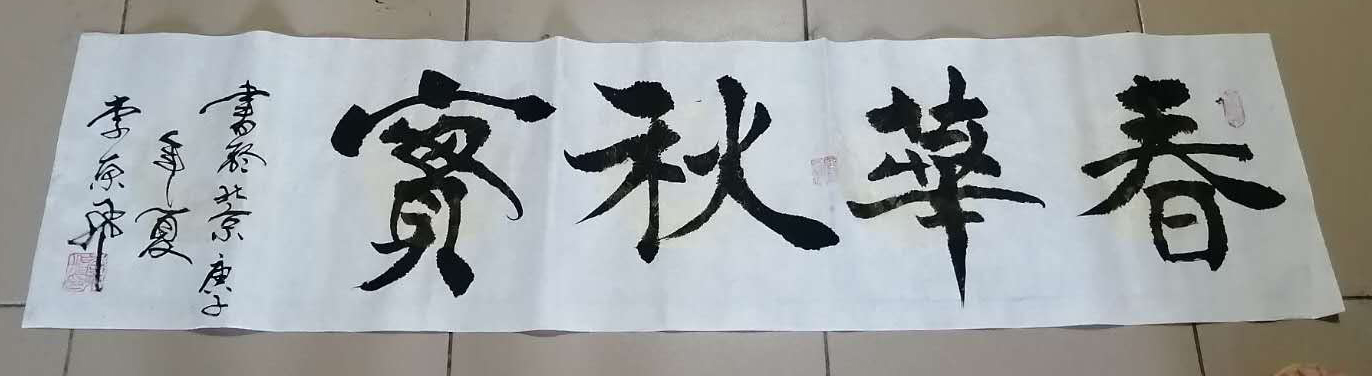 春華秋實
書於北京庚子
年夏
李